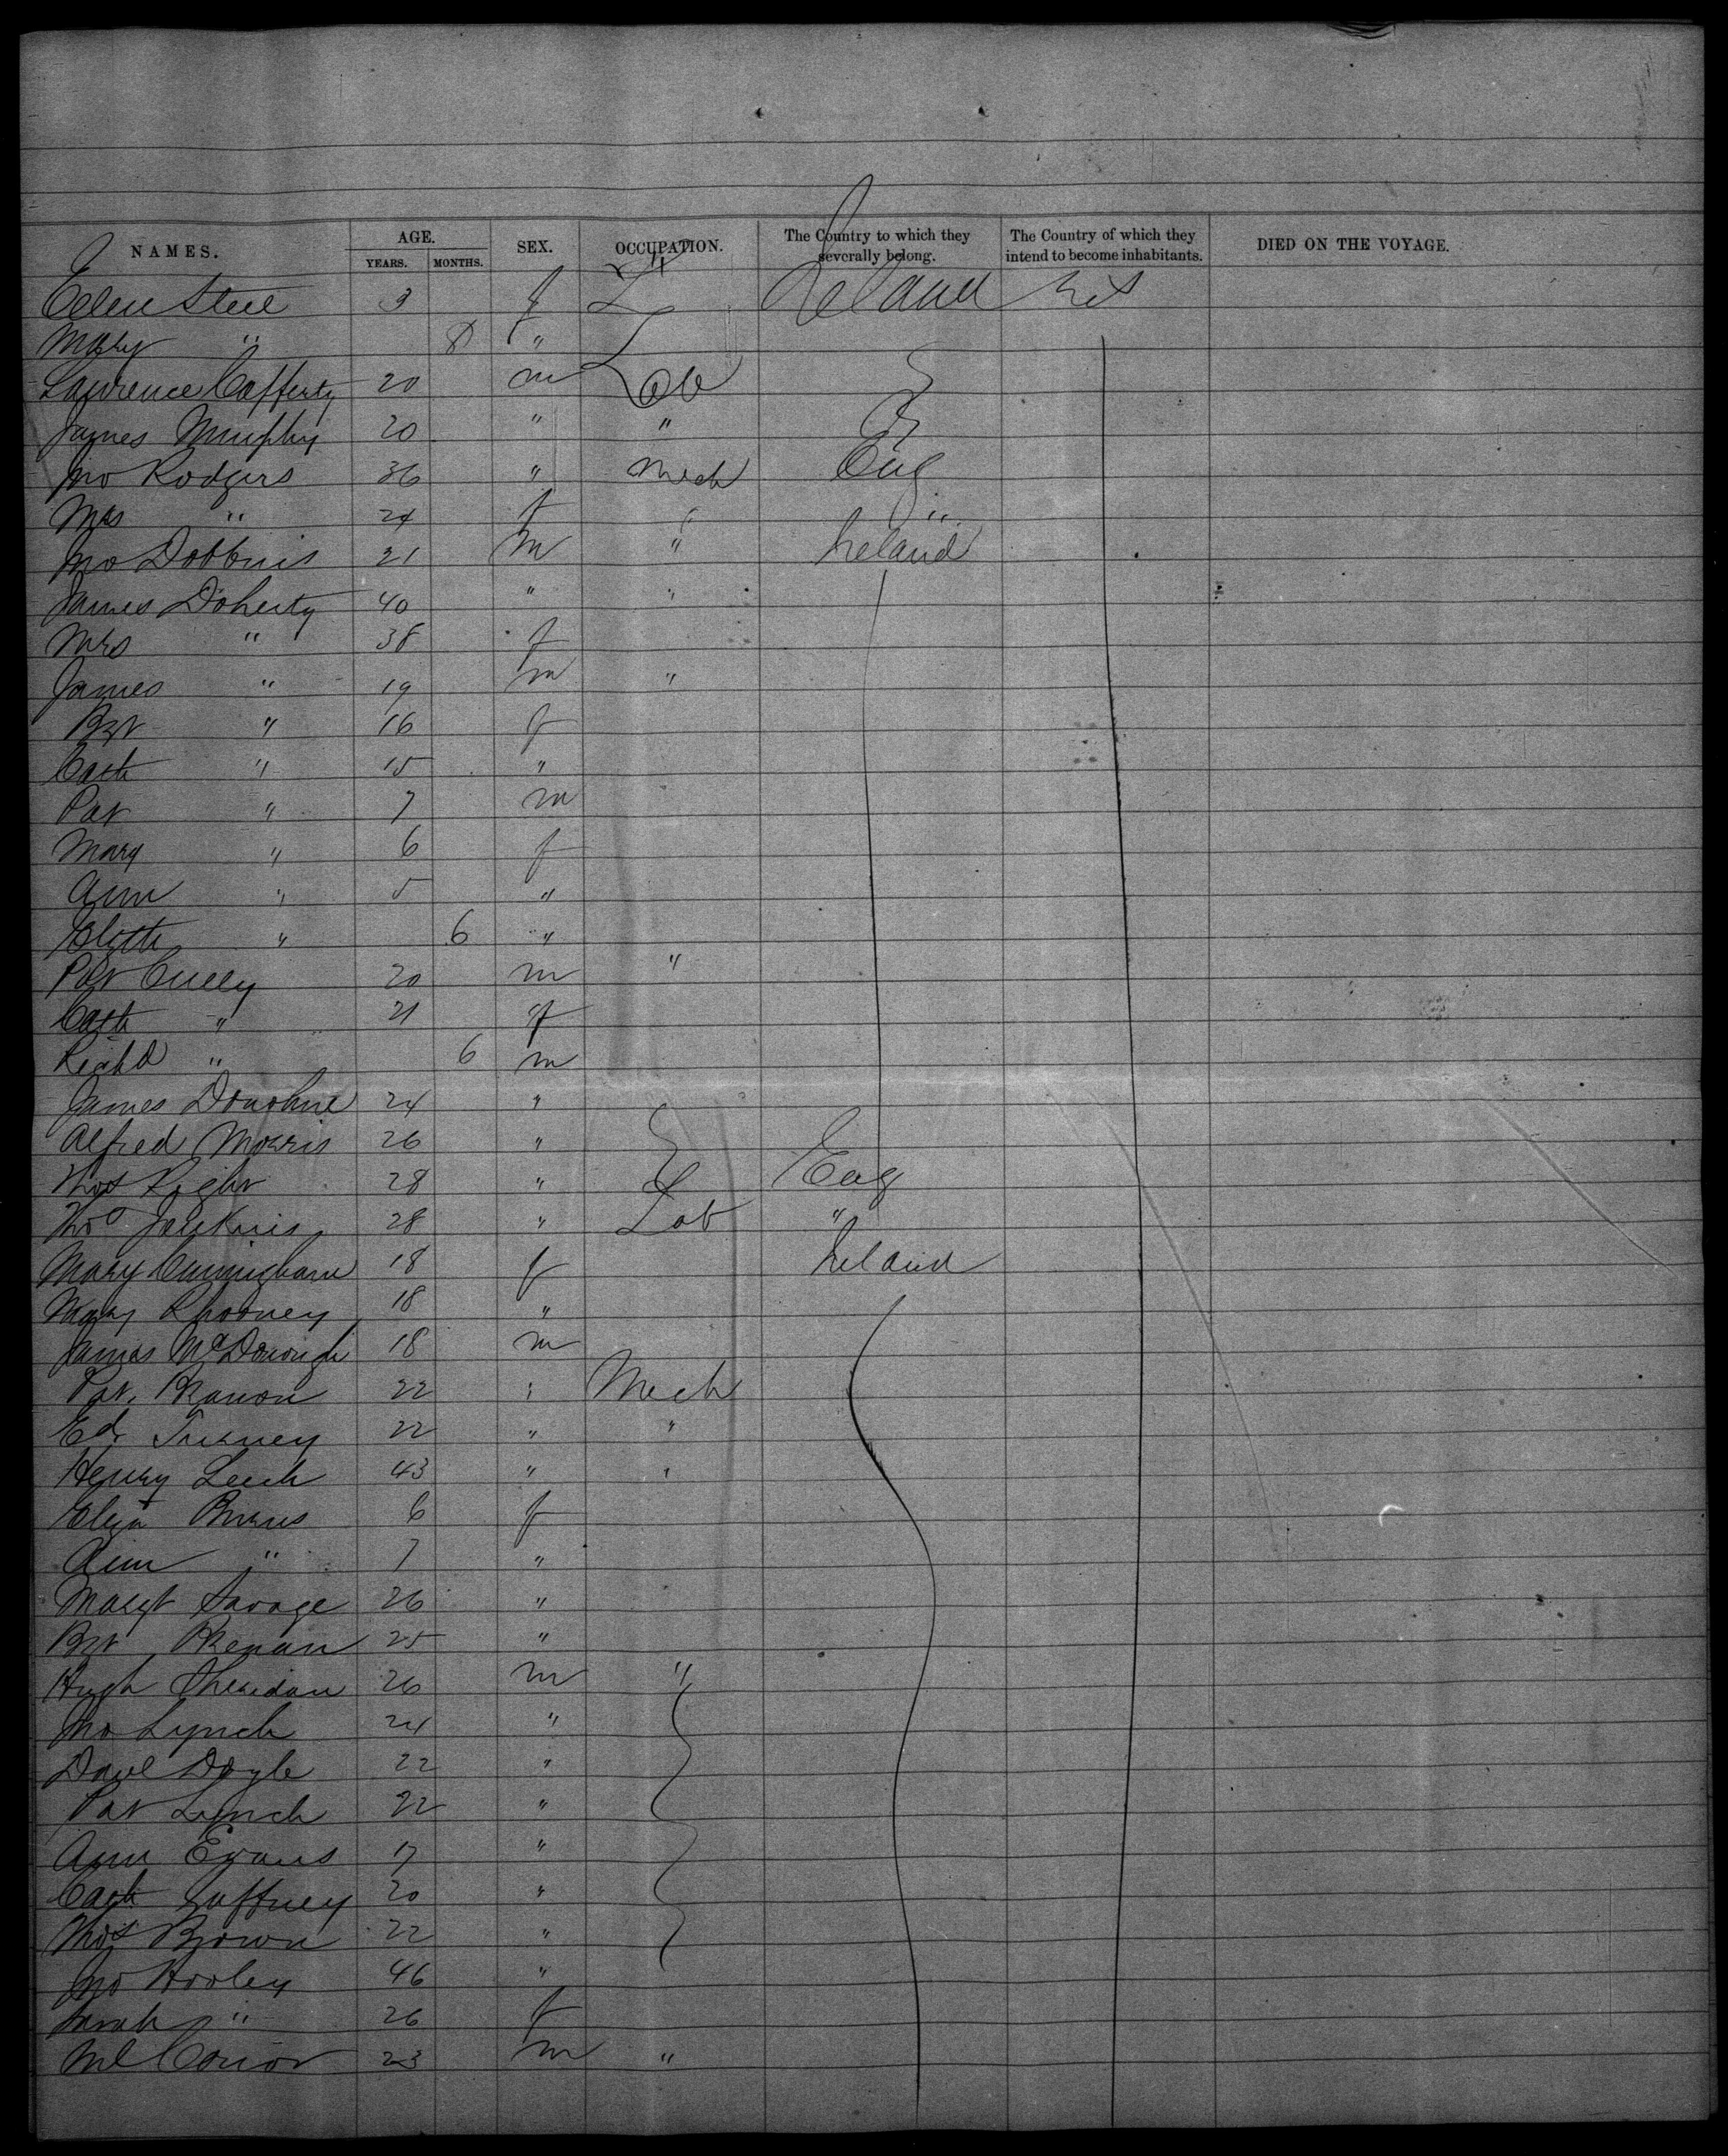 NAMES. AGE. SEX. OCCUPATION. The Country to which they severally belong. The Country of which they intend to become inhabitants. DIED ON THE VOYAGE.
YEARS. MONTHS.
Ellen Steel 3 f Ireland
Mary " 8 "
Lawrence Cafferty 20 m Lab
James Murphy 20 " "
Jno Rodgers 36 " Mech Eng
Mrs " 24 f " "
Jno Dobbins 21 m " Ireland
James Doherty 40 " "
Mrs " 38 f
James " 19 m "
Bgt " 16 f
Cath " 15 "
Pat " 7 m
Mary " 6 f
Ann " 5 "
Elizth " 6 "
Pat Cully 20 m "
Cath " 21 f
Richd " 6 m
James Donohue 24 "
Alfred Morris 26 "
Thos Right 28 " Eng
Thos Jenkins 28 " Lab "
Mary Cunnigham 18 f Ireland
Mary Rhooney 18 "
James McDonough 18 m
Pat. 22 " Mech
Ed. 22 " "
Henry Leech 43 " "
Eliza Burns 6 f
Ann " 7 "
Margt Savage 26 "
Bgt 25 "
Hugh Sheridan 26 m "
Jno Lynch 24 "
Danl Doyle 22 "
Pat Lynch 22 "
Ann Evans 17 "
Cath Gaffney 20 "
Thos Brown 22 "
Jno Hooley 46 "
Sarah " 26 f
Ml Conor 23 m "